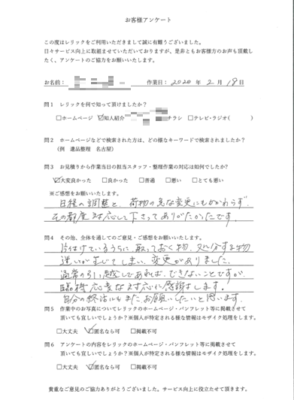 お客様アンケート
この度はレリックをご利用いただきまして誠に有難うございました。
日々サービス向上に取組ませていただいておりますが、是非ともお客様方のお声を頂戴したく、アンケートのご協力をお願いいたします。
お名前： 作業日：2020年2月18日
問1 レリックを何で知って頂けましたか？
□ホームページ ☑知人紹介 チラシ □テレビ・ラジオ( )
問2 ホームページなどで検索された方は、どの様なキーワードで検索されましたか？
(例 遺品整理 名古屋)
問3 お見積りから作業当日の担当スタッフ・整理作業の対応は如何でしたか？
☑大変良かった □良かった □普通 □悪い □とても悪い
※ご感想をお願いいたします。
日程の調整と荷物の急な変更にもかかわらず
その都度対応して下さってありがたかったです
問4 その他、全体を通してのご意見・ご感想をお願いいたします。
片付けているうちに 取っておく物、処分する物
迷いが生じてしまい、変更がありました。
通常の引っ越しであれば、できないことですが
臨機応変な対応に感謝します。
自分の終活にもまたお願いしたいと思います。
問5 作業中のお写真についてレリックのホームページ・パンフレット等に掲載させて
頂いても宜しいでしょうか？※個人が特定される様な情報はモザイク処理をします。
□大丈夫 ☑匿名なら可 □掲載不可
問6 アンケートの内容をレリックのホームページ・パンフレット等に掲載させて
頂いても宜しいでしょうか？※個人が特定される様な情報はモザイク処理をします。
□大丈夫 ☑匿名なら可 □掲載不可
貴重なご意見のご協力ありがとうございました。サービス向上に役立たせて頂きます。